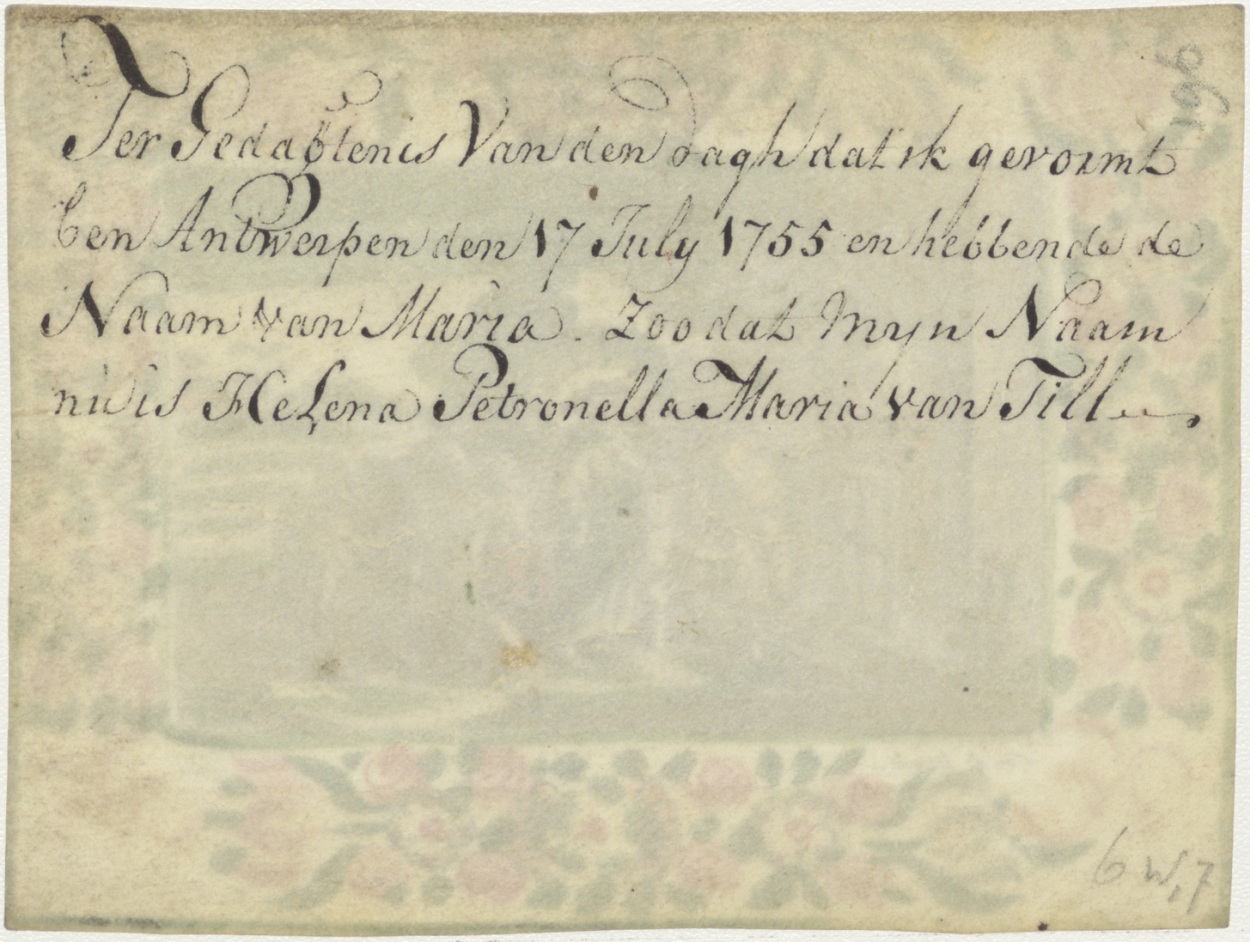 Ter Gedagtenis Van den dagh dat ik gevormt
ben Antwerpen den 17 July 1755 en hebbende de
Naam van Maria. Zoo dat Myn Naam
nu is Helena Petronella Maria van Till
196
6 w, 7